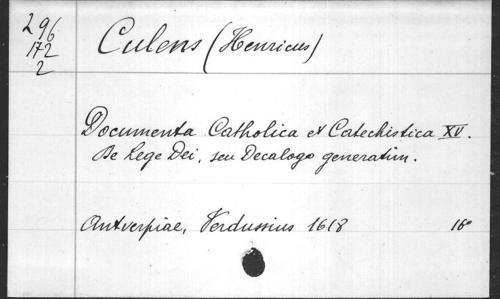 296
172
2
Culens (Henricus)
Documenta Catholica et Catechistica XV.
De Lege Dei, seu Decalogo generatim.
Antverpiae, Verdussius 1618 16°